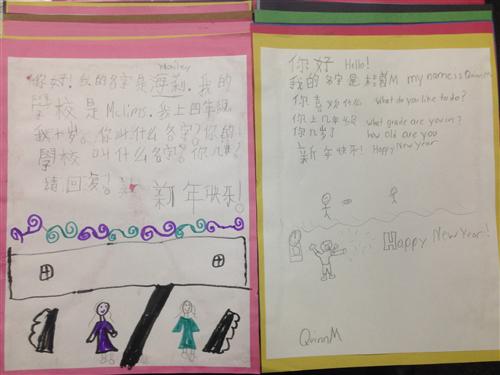 Hailey
你好！我的名字是海莉。我的
學校是Mclinns。我上四年級
我十岁。你叫什么名字？你的！
學校叫什么名字？你几岁？
請回复！
新年快乐！
你好 Hello!
我的名字是 M my name is QuinnM
你喜欢什么 What do you like to do?
你上几年级 what grade are you in?
你几岁？ how old are you
新年快乐！ Happy New year
Happy New Year!
QuinnM